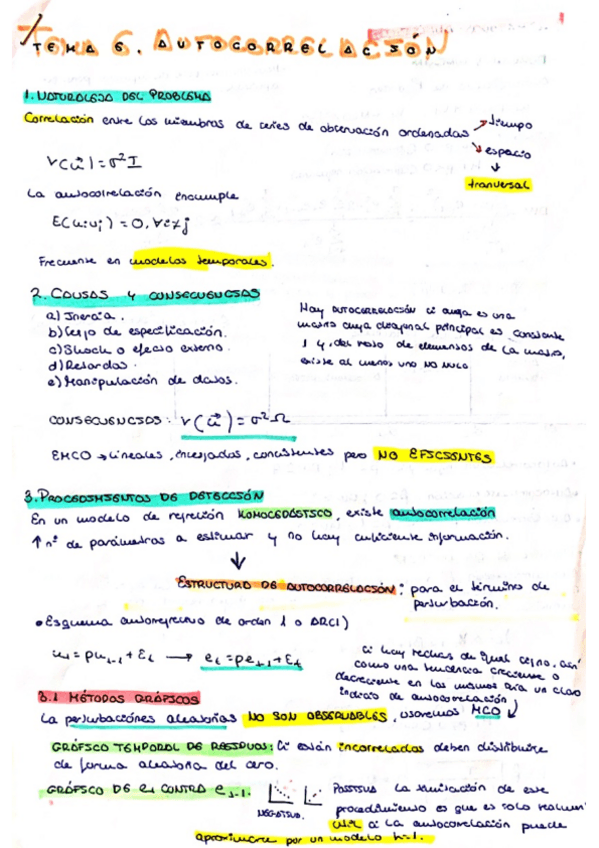 TEMA 6. AUTOCORRELACIÓN
1. NATURALEZA DEL PROBLEMA
Correlación entre los miembros de series de observación ordenadas → tiempo
↘ espacio
↓
tranversal
V(û) = σ² I
La autocorrelación incumple
E(ui uj) = 0, ∀ i ≠ j
Frecuente en modelos temporales.
2. CAUSAS Y CONSECUENCIAS
a) Inercia.
b) sesgo de especificación.
c) Shock o efecto externo.
d) Retardos.
e) Manipulación de datos.
Hay AUTOCORRELACIÓN si omega es una
matriz cuya diagonal principal es constante
1 y, del resto de elementos de la matriz,
existe al menos uno NO NULO
CONSECUENCIAS: V(û) = σ² Ω
EMCO → lineales, insesgados, consistentes pero NO EFICIENTES
3. PROCEDIMIENTOS DE DETECCIÓN
En un modelo de regresión HOMOCEDÁSTICO, existe autocorrelación
↑ nº de parámetros a estimar y no hay suficiente información.
↓
ESTRUCTURA DE AUTOCORRELACIÓN: para el término de
perturbación.
• Esquema autorregresivo de orden 1 o AR(1)
ut = ρut-1 + εt → et = ρet-1 + εt
Si hay rachas de igual signo, así
como una tendencia creciente o
decreciente en los mismos será un claro
indicio de autocorrelación
3.1 MÉTODOS GRÁFICOS
La perturbaciónes aleatorias NO SON OBSERVABLES, usaremos MCO
GRÁFICO TEMPORAL DE RESIDUOS: Si están incorrelados deben distribuirse
de forma aleatoria del cero.
GRÁFICO DE et CONTRA et-1.
NEGATIVA.
POSITIVA
La limitación de este
procedimiento es que es solo realmen
útil si la autocorrelación puede
aproximarse por un modelo